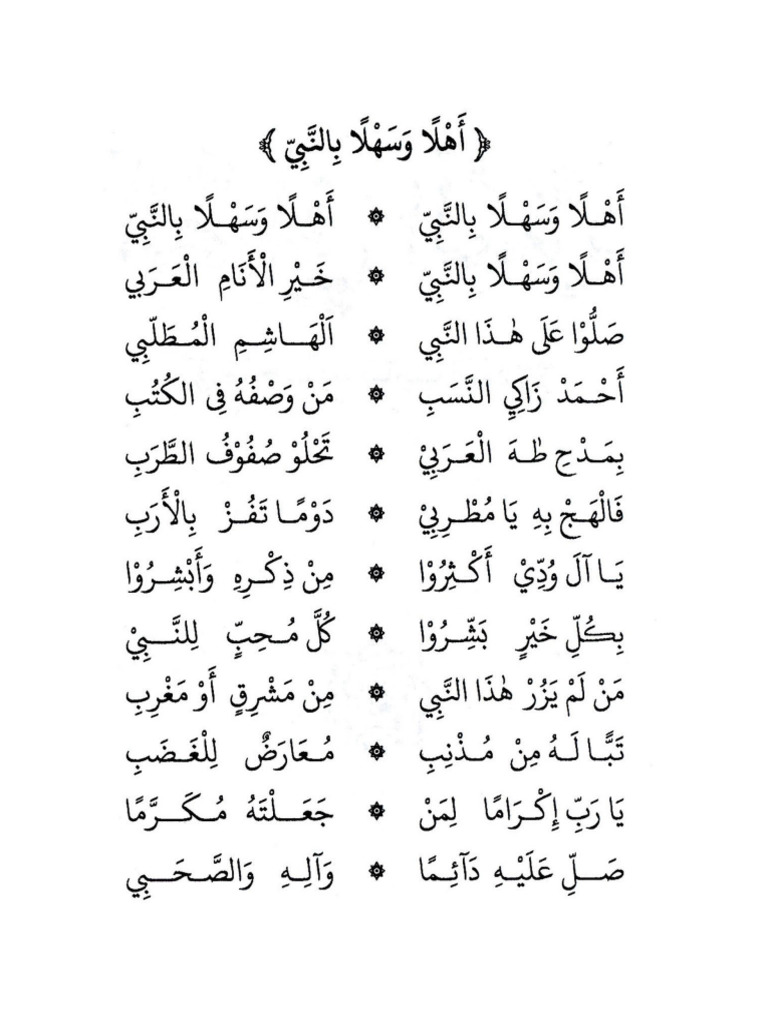 ﴿ أَهْلًا وَسَهْلًا بِالنَّبِيّ ﴾
أَهْلًا وَسَهْلًا بِالنَّبِيّ ۞ أَهْلًا وَسَهْلًا بِالنَّبِيّ
أَهْلًا وَسَهْلًا بِالنَّبِيّ ۞ خَيْرِ الْأَنَامِ الْعَرَبِي
صَلُّوْا عَلَى هٰذَا النَّبِي ۞ اَلْهَاشِمِ الْمُطَلّبِي
أَحْمَدْ زَاكِيِ النَّسَبِ ۞ مَنْ وَصْفُهُ فِى الكُتُبِ
بِمَدْحِ طٰهَ الْعَرَبِيْ ۞ تَحْلُوْ صُفُوْفُ الطَّرَبِ
فَالْهَجْ بِهِ يَا مُطْرِبِيْ ۞ دَوْمًا تَفُزْ بِالْأَرَبِ
يَا آلَ وُدِّيْ أَكْثِرُوْا ۞ مِنْ ذِكْرِهِ وَأَبْشِرُوْا
بِكُلِّ خَيْرٍ بَشِّرُوْا ۞ كُلَّ مُحِبٍّ لِلنَّبِيْ
مَنْ لَمْ يَزُرْ هٰذَا النَّبِي ۞ مِنْ مَشْرِقٍ أَوْ مَغْرِبِ
تَبًّا لَهُ مِنْ مُذْنِبِ ۞ مُعَارَضٌ لِلْغَضَبِ
يَا رَبِّ إِكْرَامًا لِمَنْ ۞ جَعَلْتَهُ مُكَرَّمًا
صَلِّ عَلَيْهِ دَآئِمًا ۞ وَآلِهِ وَالصَّحَبِي